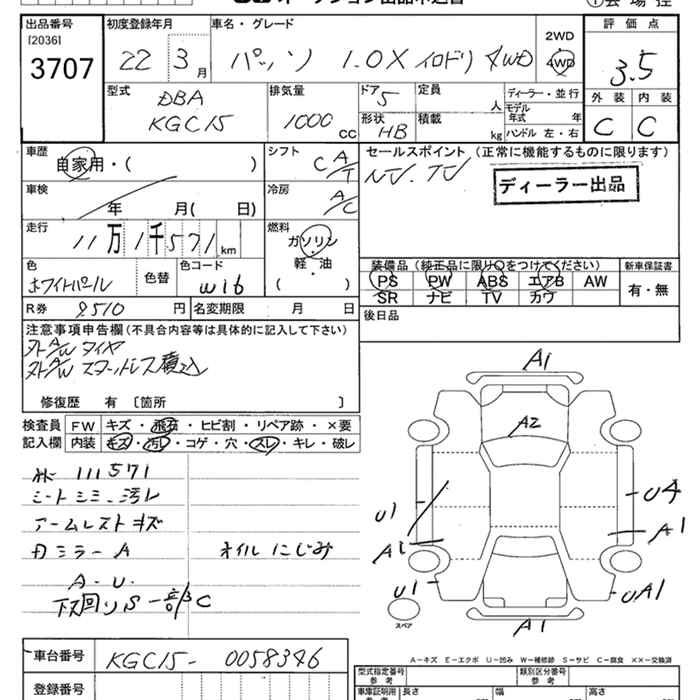 出品番号
[2036]
3707
初度登録年月
22年 3月
車名・グレード
パッソ 1.0X イロドリ 4WD
2WD
4WD
評価点
3.5
外装 内装
C C
型式
DBA
KGC15
排気量
1000 cc
ドア 5
形状 HB
定員 人
積載 kg
ディーラー・並行
モデル年式 年
ハンドル 左・右
車歴
自家用・( )
シフト
C A/T
セールスポイント (正常に機能するものに限ります)
NV. TV
ディーラー出品
車検
年 月( 日)
冷房
A/C
走行
11万1千571km
燃料
ガソリン
軽・油
( )
装備品(純正品に限り○をつけてください)
PS PW ABS エアB AW
SR ナビ TV カワ
新車保証書
有・無
色
ホワイトパール
色替
色コード
W16
後日品
R券 9510 円
名変期限 月 日
注意事項申告欄(不具合内容等は具体的に記入して下さい)
外A/W タイヤ
外A/W スタッドレス積込
修復歴 有 〔箇所 〕
検査員 FW キズ・飛石・ヒビ割・リペア跡・×要
記入欄 内装 キズ・汚レ・コゲ・穴・スレ・キレ・破レ
111571
シートシミ、汚レ
アームレストキズ
ミラーA
オイルにじみ
A.U.
下回りS 一部C
A1
A2
U1
A1
U1
U4
A1
UA1
A1
スペア
A−キズ E−エクボ U−凹み W−補修跡 S−サビ C−腐食 ××−交換済
車台番号
KGC15-0058346
登録番号
型式指定番号
参考
類別区分番号
参考
車庫証明用
参考
長さ
幅
高さ